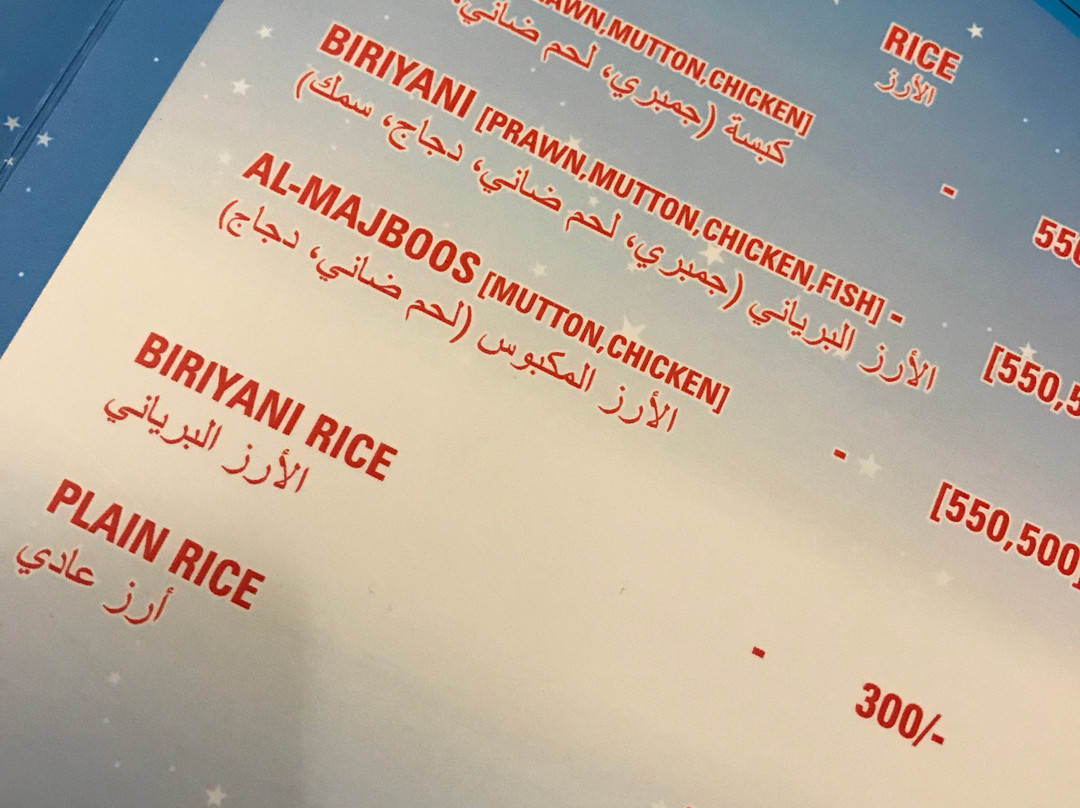 RICE
الأرز
PRAWN,MUTTON,CHICKEN]
كبسة (جمبري، لحم ضاني،
-
BIRIYANI [PRAWN,MUTTON,CHICKEN,FISH] -
الأرز البرياني (جمبري، لحم ضاني، دجاج، سمك)
AL-MAJBOOS [MUTTON,CHICKEN]
الأرز المكبوس (لحم ضاني، دجاج)
-
[550,500]
BIRIYANI RICE
الأرز البرياني
- 300/-
PLAIN RICE
أرز عادي